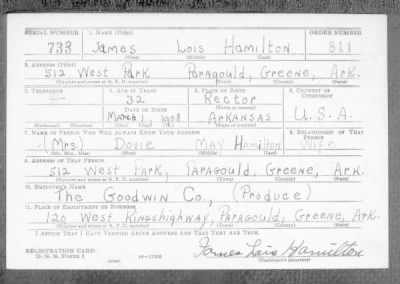 SERIAL NUMBER 1. NAME (Print) ORDER NUMBER
733 James Lois Hamilton 811
(First) (Middle) (Last)
2. ADDRESS (Print)
512 West Park Paragould, Greene, Ark.
(Number and street or R. F. D. number) (Town) (County) (State)
3. TELEPHONE 4. AGE IN YEARS 5. PLACE OF BIRTH 6. COUNTRY OF CITIZENSHIP
— 32 Rector
DATE OF BIRTH (Town or county)
March 1 1908 ARKANSAS U.S.A.
(Exchange) (Number) (Mo.) (Day) (Yr.) (State or country)
7. NAME OF PERSON WHO WILL ALWAYS KNOW YOUR ADDRESS 8. RELATIONSHIP OF THAT PERSON
(Mrs.) Dovie May Hamilton Wife
(Mr., Mrs., Miss) (First) (Middle) (Last)
9. ADDRESS OF THAT PERSON
512 West Park, Paragould, Greene, Ark.
(Number and street or R. F. D. number) (Town) (County) (State)
10. EMPLOYER'S NAME
The Goodwin Co., (Produce)
11. PLACE OF EMPLOYMENT OR BUSINESS
120 West Kingshighway, Paragould, Greene, Ark.
(Number and street or R. F. D. number) (Town) (County) (State)
I AFFIRM THAT I HAVE VERIFIED ABOVE ANSWERS AND THAT THEY ARE TRUE.
REGISTRATION CARD James Lois Hamilton
D. S. S. Form 1 (over) (Registrant's signature)